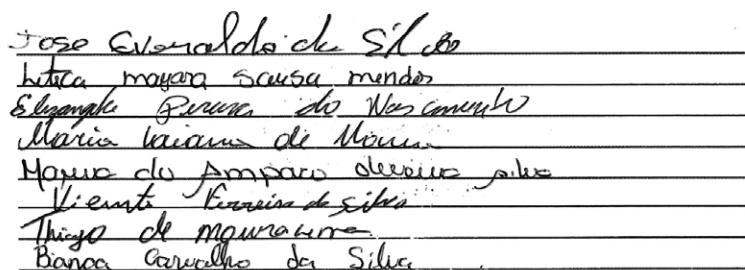 Jose Everaldo da Silva
Letica mayara Sousa mendes
Elizangela Pereira do Nascimento
Maria Laiana de Moura
Maria do Amparo oliveira silva
Vicente Ferreira da silva
Thiago de moura
Bianca Carvalho da Silva